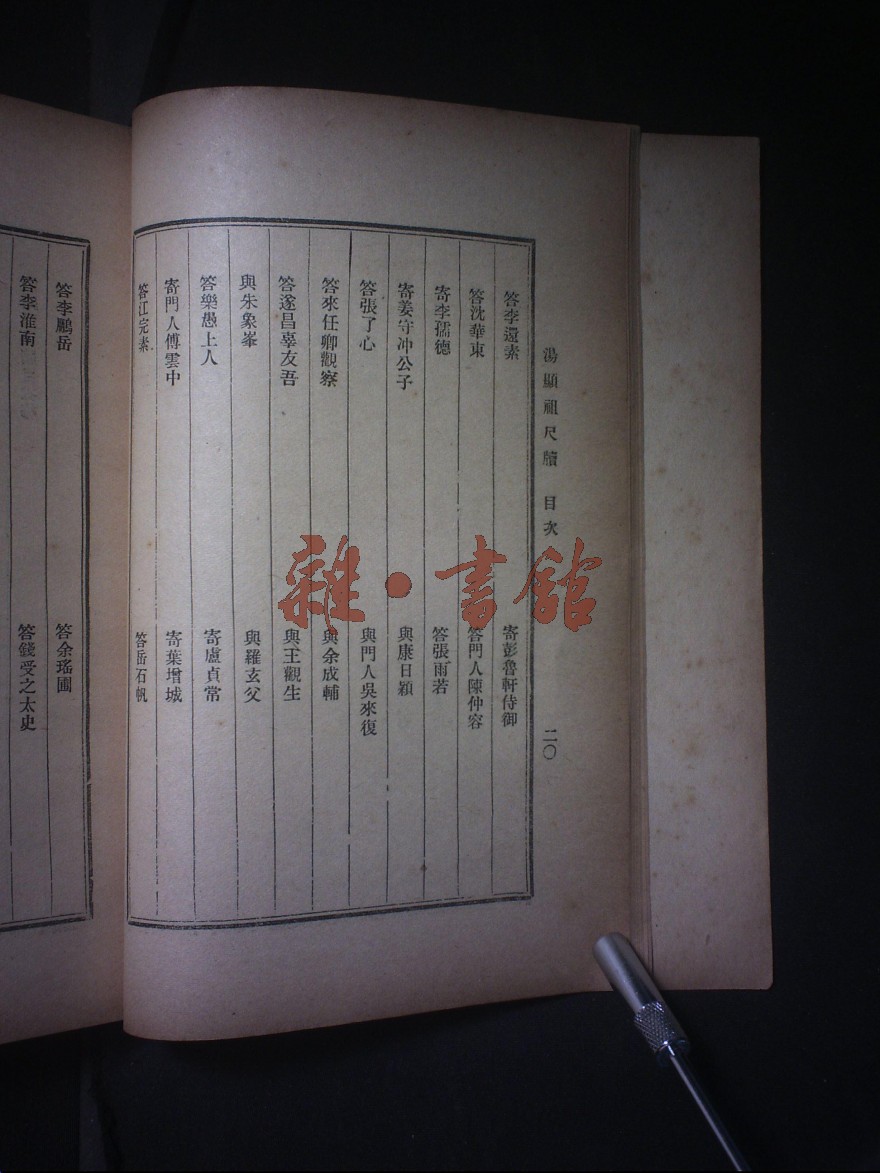 湯顯祖尺牘 目次 二〇
答李還素 寄彭魯軒侍御
答沈華東 答門人陳仲容
寄李孺德 答張雨若
寄姜守冲公子 與康日穎
答張了心 與門人吳來復
答來任卿觀察 與余成輔
答遂昌辜友吾 與王觀生
與朱象峯 與羅玄父
答樂愚上人 寄盧貞常
寄門人傅雲中 寄葉增城
答江完素 答岳石帆
答李鵬岳 答余瑤圃
答李淮南 答錢受之太史
雜·書館